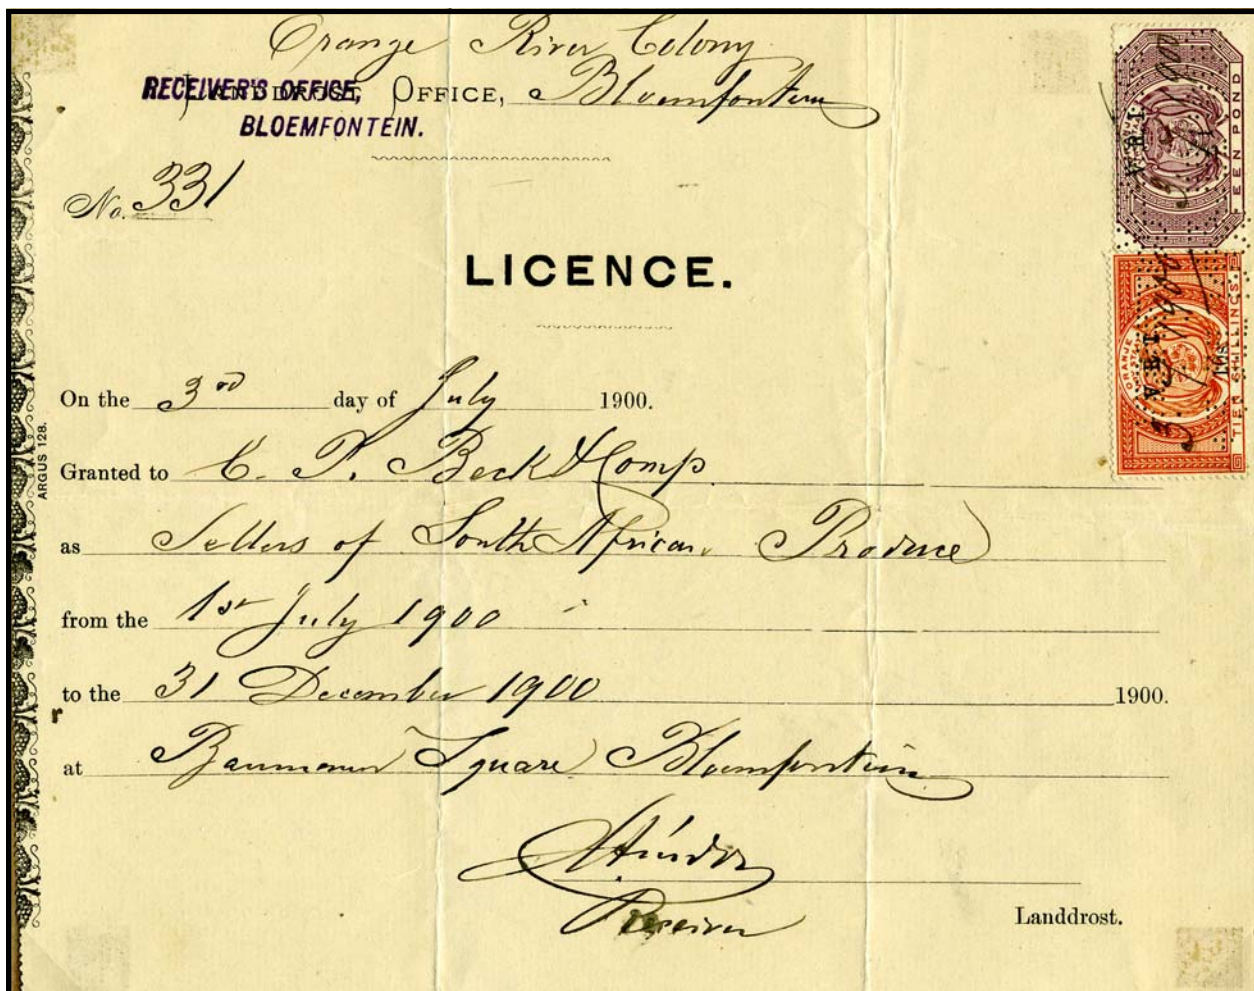 Orange River Colony
LANDDROST OFFICE, Bloemfontein
RECEIVER'S OFFICE,
BLOEMFONTEIN.
No. 331
LICENCE.
On the 3rd day of July 1900.
Granted to C. P. Beck & Comp.
as Sellers of South African Produce
from the 1st July 1900
to the 31 December 1900 1900.
at Baumann Square Bloemfontein
Receiver
Landdrost.
ARGUS 128.
EEN POND
V.R.I.
£1
ORANJE
TIEN SHILLINGS.
V.R.I.
10s